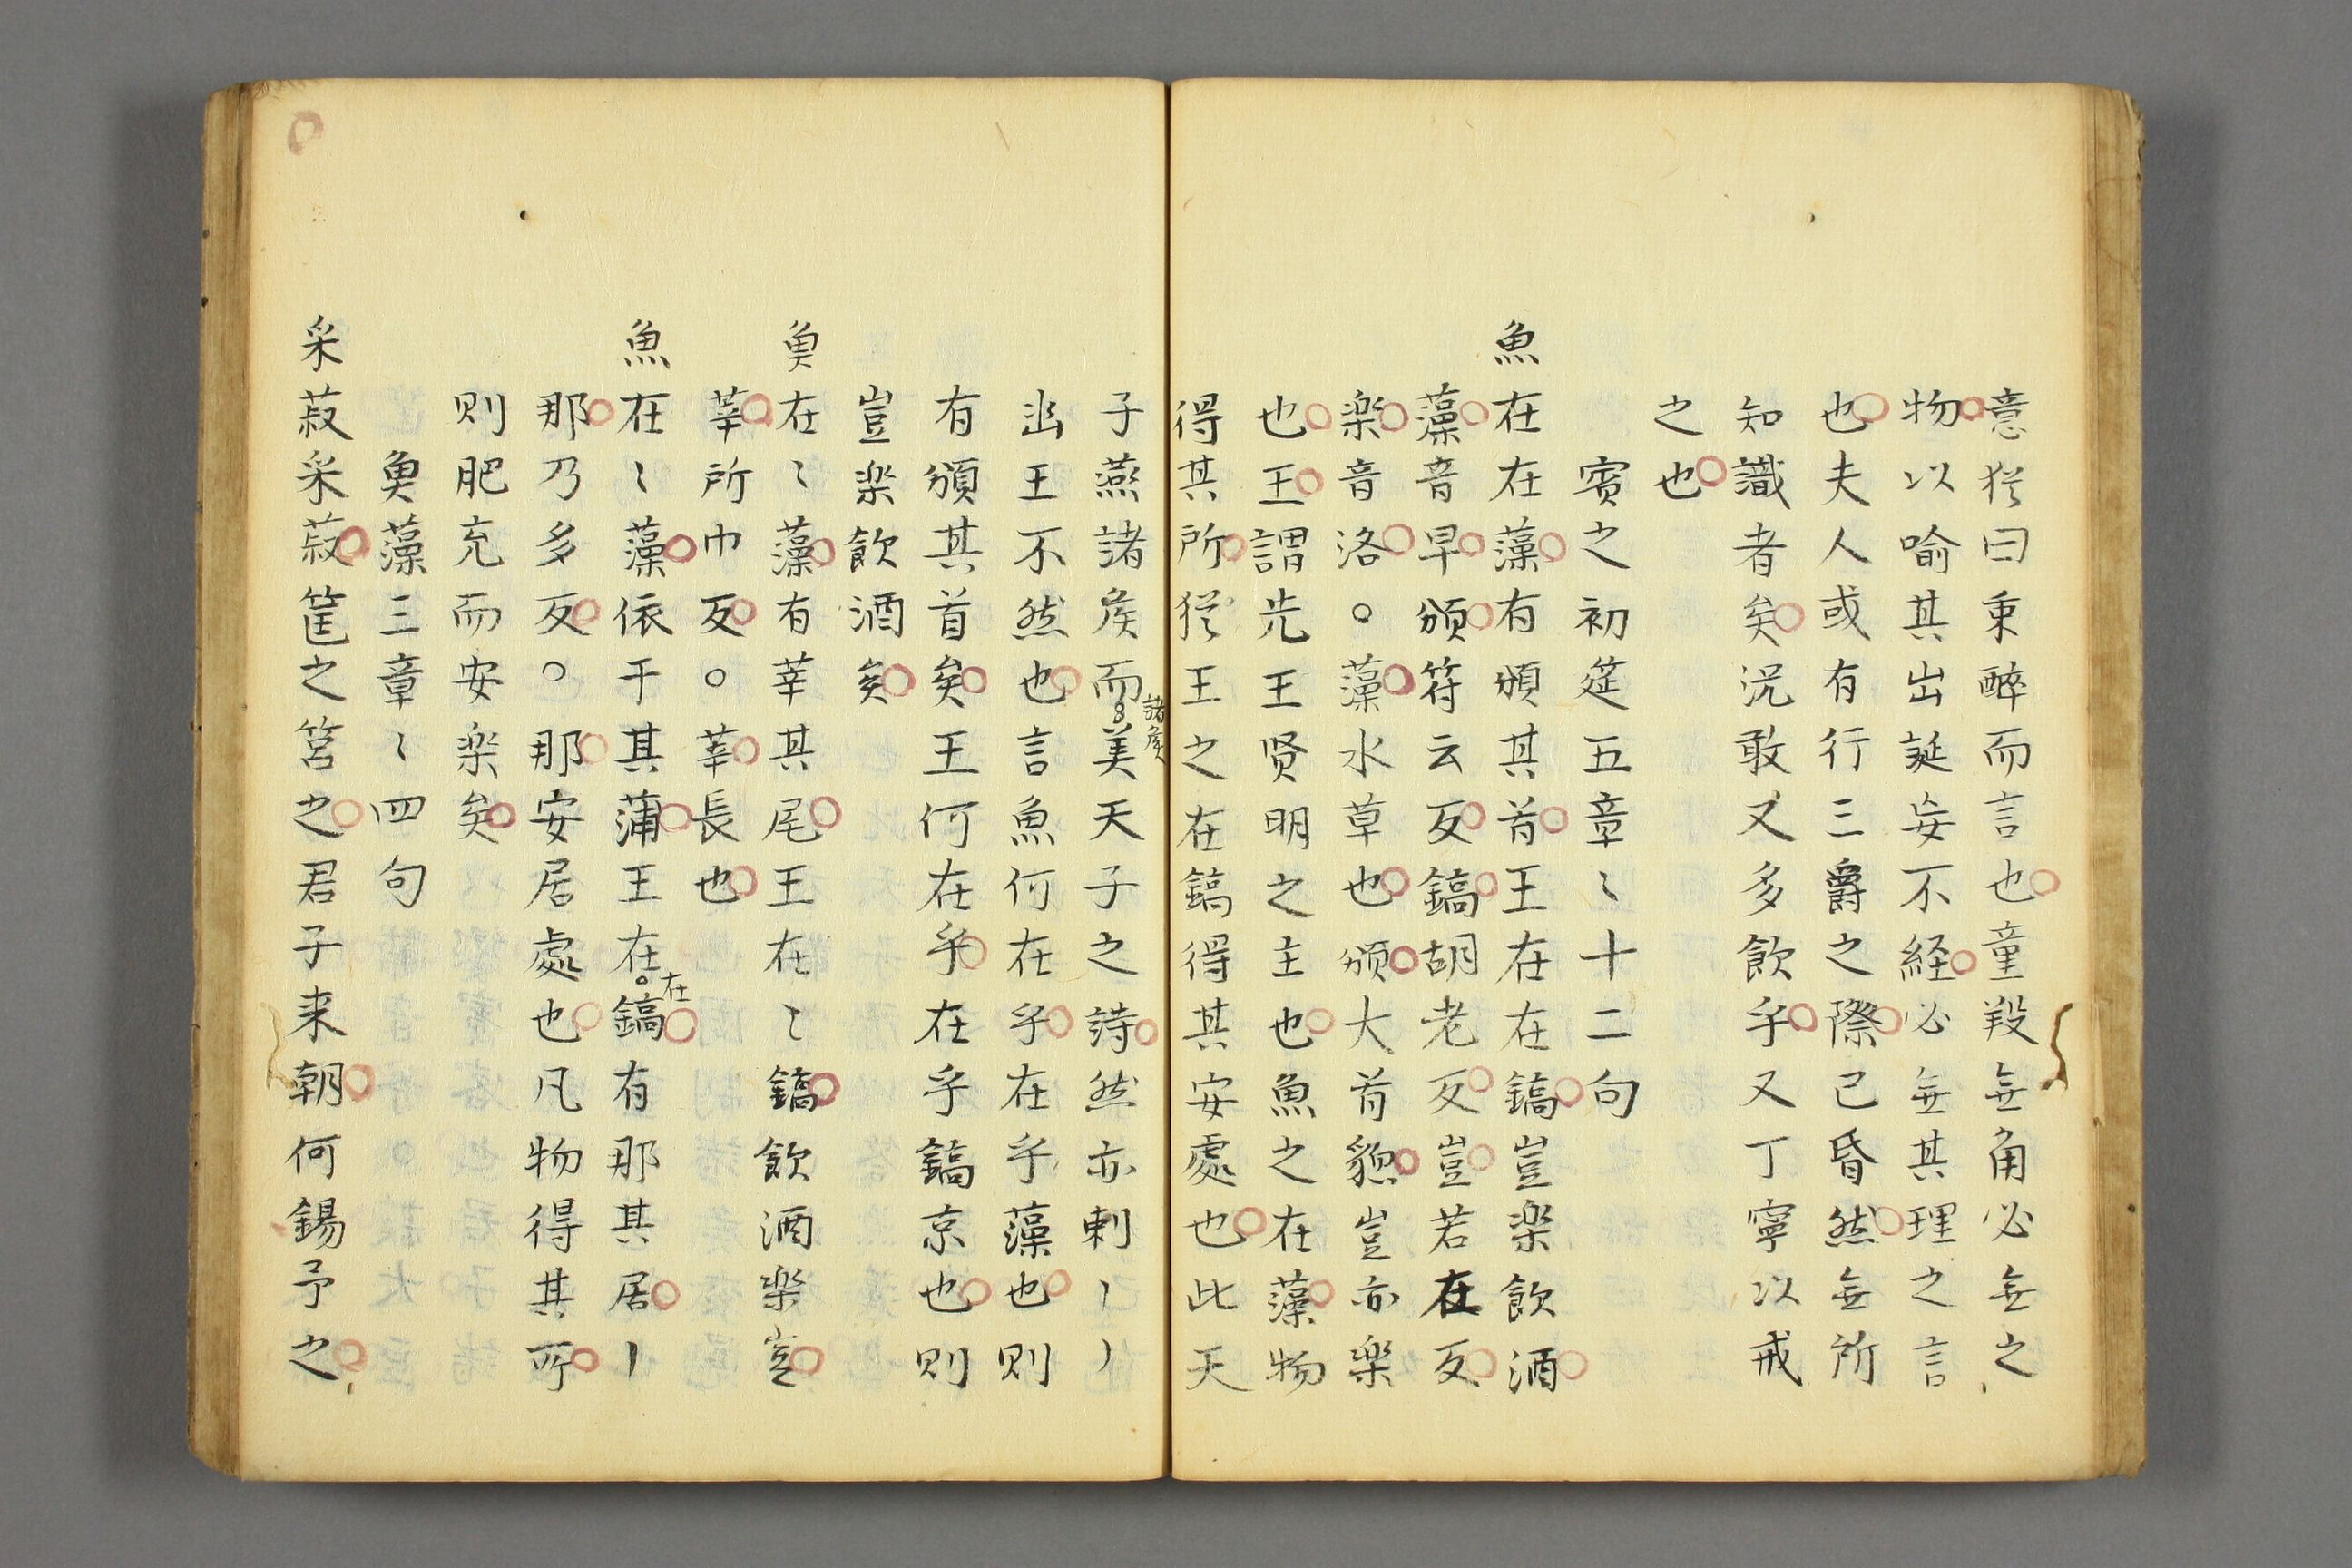 意猶曰由醉而言也童羖無角必無之
物以喻其出誕妄不経必無其理之言
也夫人或有行三爵之際已昏然無所
知識者矣況敢又多飲乎又丁寧以戒
之也
賓之初筵五章〻十二句
魚在在藻有頒其首王在在鎬豈楽飲酒
藻音早頒符云反鎬胡老反豈若在反
楽音洛○藻水草也頒大首貌豈亦楽
也王謂先王賢明之主也魚之在藻物
得其所猶王之在鎬得其安處也此天
子燕諸侯而諸侯美天子之詩然亦刺〻
幽王不然也言魚何在乎在乎藻也則
有頒其首矣王何在乎在乎鎬京也則
豈楽飲酒矣
魚在〻藻有莘其尾王在〻鎬飲酒楽豈
莘所巾反○莘長也
魚在〻藻依于其蒲王在在鎬有那其居〻
那乃多反○那安居處也凡物得其所
則肥充而安楽矣
魚藻三章〻四句
采菽采菽筐之筥之君子来朝何錫予之